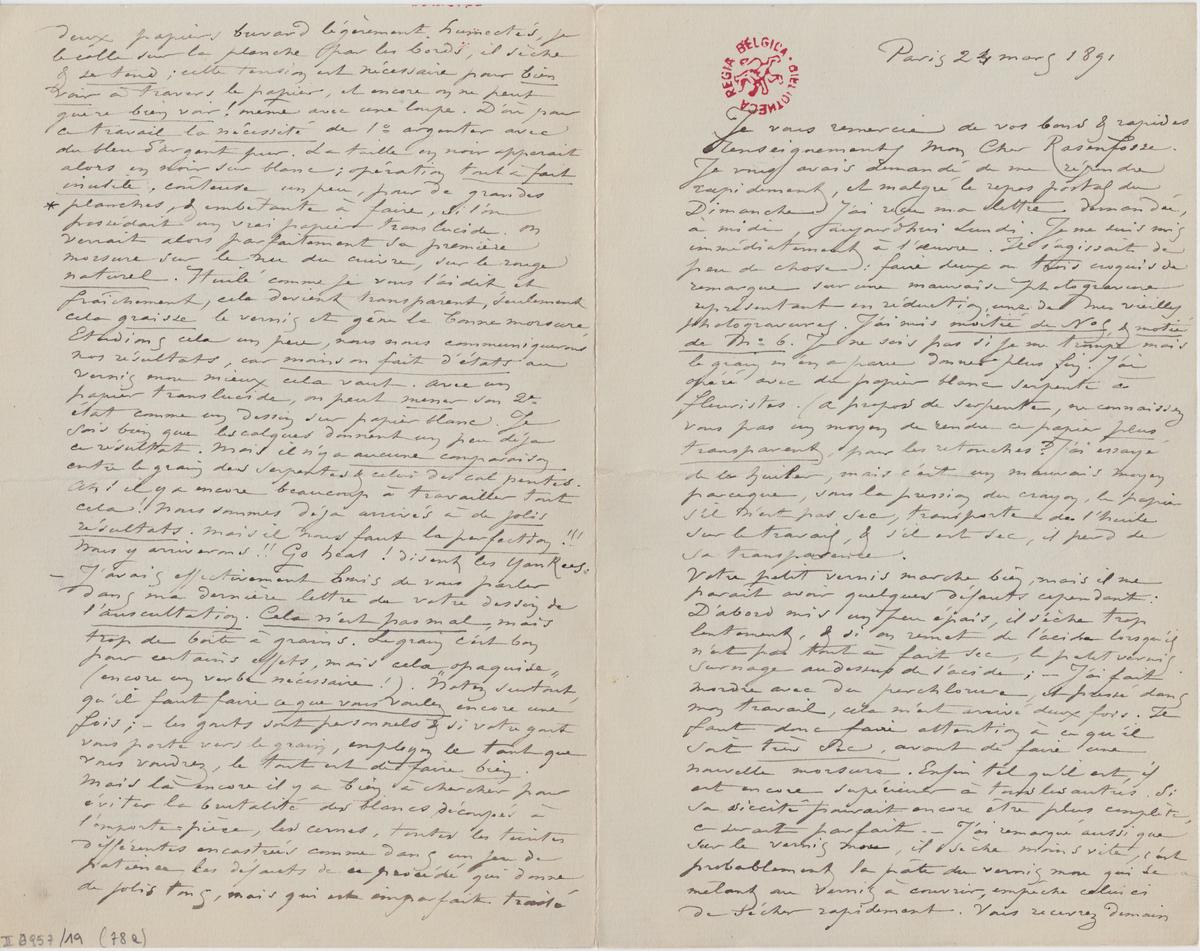 deux papiers buvard légèrement humectés, je
le colle sur la planche (par les bords, il sèche
& se tend ; cette tension est nécessaire pour bien
voir à travers le papier, et encore on ne peut
guère bien voir ! même avec une loupe. D'où pour
ce travail la nécessité de 1º argenter avec
du bleu d'argent pur. La taille en noir apparait
alors en noir sur blanc ; opération tout à fait
inutile, couteuse un peu, pour de grandes
* planches, & embetante à faire, si l'on
possédait un vrai papier translucide. On
verrait alors parfaitement sa première
morsure sur le nu du cuivre, sur le rouge
naturel. Huilé comme je vous l'ai dit et
fraîchement, cela devient transparent, seulement
cela graisse le vernis et gêne la bonne morsure
Etudions cela un peu, nous nous communiquerons
nos résultats, car moins on fait d'états au
vernis mou mieux cela vaut. Avec un
papier translucide, on peut mener son 2e
état comme un dessin sur papier blanc. Je
sais bien que les calques donnent un peu déjà
ce résultat. Mais il n'y a aucune comparaison
entre le grain des serpentes & celui des calquentes.
Ah ! il y a encore beaucoup à travailler tout
cela ! Nous sommes déjà arrivés à de jolis
résultats. mais il nous faut la perfection !!!
Nous y arriverons !! Go head ! disent les Yankees.
– J'avais effectivement omis de vous parler
dans ma dernière lettre de votre dessin de
l'auscultation. Cela n'est pas mal, mais
trop de boîte à grains. Le grain c'est bon
pour certains effets, mais cela "opaquise"
(encore un verbe nécessaire !). Notez surtout,
qu'il faut faire ce que vous voulez encore une
fois ; – les gouts sont personnels & si votre gout
vous porte vers le grain, employez le tant que
vous voudrez, le tout est de faire bien.
Mais là encore il y a bien à chercher pour
éviter la brutalité des blancs découpés à
l'emporte-pièce, les cernes, toutes les teintes
différentes encastrées comme dans un jeu de
patience les défauts de ce procédé qui donne
de jolis tons, mais qui est imparfait. traité
II 6957/19 (78a)
REGIA BELGICA · BIBLIOTHECA
Paris 24 mars 1891
Je vous remercie de vos bons & rapides
renseignements mon Cher Rasenfosse.
Je vous avais demandé de me répondre
rapidement, et malgré le repos postal du
Dimanche j'ai reçu ma lettre demandée,
à midi aujourd'hui Lundi. Je me suis mis
immédiatement à l'œuvre. Il s'agissait de
peu de chose : faire deux ou trois croquis de
remarque sur une mauvaise photogravure
représentant en réduction, une de mes vieilles
photogravures. J'ai mis moitié de No 5 & moitié
de No 6. Je ne sais pas si je me trompe mais
le grain m'en a paru donner plus fin. J'ai
opéré avec du papier blanc serpente de
fleuristes. (a propos de serpente, ne connaissez
vous pas un moyen de rendre ce papier plus
transparent, pour les retouches ? J'ai essayé
de la huiler, mais c'est un mauvais moyen
parceque, sous la pression du crayon, le papier
s'il n'est pas sec, transporte de l'huile
sur le travail, & s'il est sec, il perd de
sa transparence.
Votre petit vernis marche bien, mais il me
parait avoir quelques défauts cependant :
D'abord mis un peu épais, il sèche trop
lentement, & si on remet de l'acide lorsqu'il
n'est pas tout à fait sec, le petit vernis
surnage au dessus de l'acide ; – J'ai fait
mordre avec du perchlorure, et pressé dans
mon travail, cela m'est arrivé deux fois. Il
faut donc faire attention à ce qu'il
soit très sec, avant de faire une
nouvelle morsure. Enfin tel qu'il est, il
est encore supérieur à tous les autres. Si
sa siccité pouvait encore être plus complète,
ce serait parfait. – J'ai remarqué aussi que
sur le vernis mou, il sèche moins vite, c'est
probablement la pâte du vernis mou qui se
mêlant au vernis à couvrir, empêche celui ci
de sécher rapidement. Vous recevrez demain